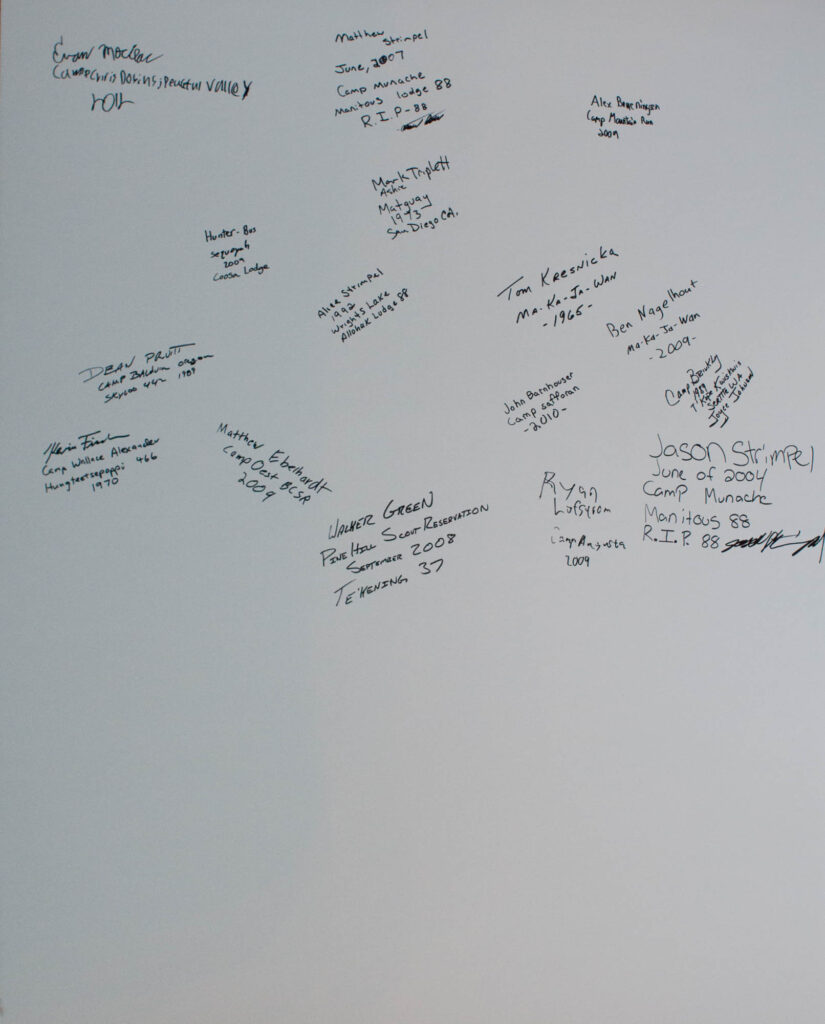 Matthew
Strimpel
June, 2007
Camp Munache
Manitous lodge 88
R.I.P-88
Evan
Peaceful Valley
Alex
Camp Mountain Run
2009
Mark Triplett
Matguay
1973
San Diego CA.
Hunter-Bus
Sequoyah
2009
Coosa Lodge
Alice Strimpel
1992
Wrights Lake
Allohak Lodge 88
Tom Kresnicka
Ma-Ka-Ja-Wan
-1965-
Ben Nagelhout
Ma-Ka-Ja-Wan
-2009-
DEAN PRUITT
CAMP BALDWIN oregon
442 1989
John Barnhouser
Camp saffaran
-2010-
Camp
Seattle WA
Kevin
Camp Wallace Alexander
Hungteetsepoppi 466
1970
Matthew Eberhardt
Camp Oest BCSR
2009
WALKER GREEN
PINE HILL SCOUT RESERVATION
SEPTEMBER 2008
TE'KENING 37
Ryan
Camp Augusta
2009
Jason Strimpel
June of 2004
Camp Munache
Manitous 88
R.I.P. 88